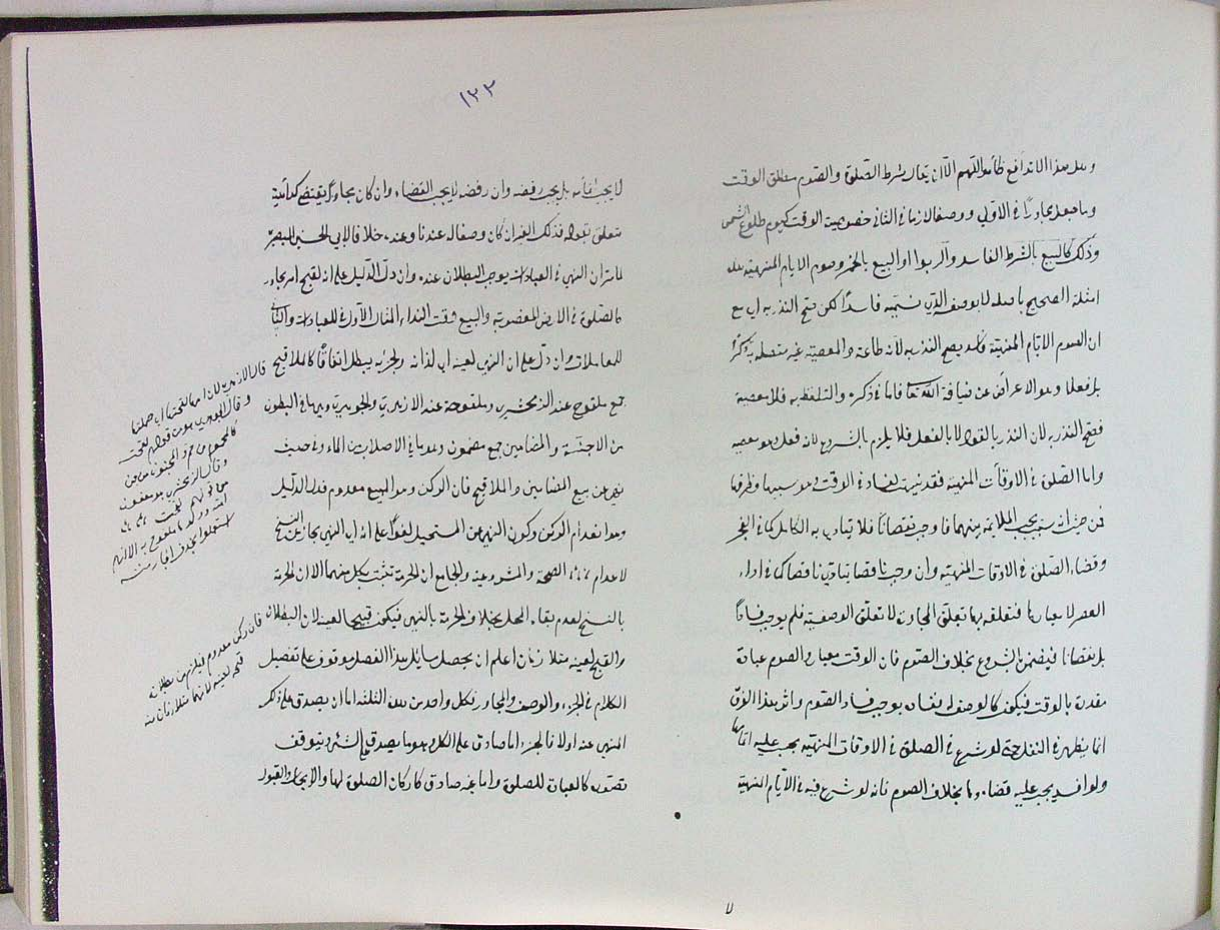 ١٢٢
وهل هذا الا تدافع ظاهر اللهم الا ان يقال شرط الصلوة والصوم مطلق الوقت
وما جعل مجاورا فى الاولى ووصفا لازما فى الثانى خصوصية الوقت كيوم طلوع الشمس
وذلك كالبيع بالشرط الفاسد والربوا والبيع بالخمر وصوم الايام المنهية هذه
امثلة الصحيح باصله لا بوصفه الذى نسميه فاسدا لكن صح النذر به اى مع
ان الصوم الايام المنهية فاسد يصح النذر به لانه طاعة والمعصية غير متصلة به ذكرا
بل فعلا وهو الاعراض عن ضيافة الله تعا فاما فى ذكره والتلفظ به فلا معصية
فصح النذر به لان النذر بالقول لا بالفعل فلا يلزم بالشروع لانه فعل وهو معصية
واما الصلوة فى الاوقات المنهية فقد نهيت لفساد فى الوقت وهو سببها وظرفها
فمن حيث انه سبب يجب الملائمة بينهما فاوجب نقصانا فلا يتادى به الكامل كما فى الفجر
وقضاء الصلوة فى الاوقات المنهية وان وجب ناقصا يتادى ناقصا كما فى اداء
العصر لا معيارها فتعلقه بها تعلق المجاورة لا تعلق الوصفية فلم يوجب فسادا
بل نقصانا فيضمن بالشروع بخلاف الصوم فان الوقت معياره والصوم عبادة
مقدرة بالوقت فيكون كالوصف له ففساده يوجب فساد الصوم واثر هذا الفرق
انما يظهر فى النفل حتى لو شرع فى الصلوة فى الاوقات المنهية يجب عليه اتمامها
ولو افسد يجب عليه قضاءها بخلاف الصوم فانه لو شرع فيه فى الايام المنهية
لا يجب اتمامه بل يجب رفضه وان رفضه لا يجب القضاء وان كان مجاورا يقتضى كراهية
يتعلق بقوله فذلك الغير ان كان وصفا له عندنا وعنده خلافا لابى الحسين البصرى
لما مر ان النهى فى العبادات يوجب البطلان عنده وان دل الدليل على انه لقبح امر مجاور
كالصلوة فى الارض المغصوبة والبيع وقت النداء المثال الاول للعبادات والثانى
للمعاملات وان دل على ان النهى لعينه اى لذاته ولجزئه يبطل اتفاقا كالملاقيح
جمع ملقوح عند الزمخشرى وملقوحة عند الازهرى والجوهرى وهى ما فى البطون
من الاجنة والمضامين جمع مضمون وهو ما فى الاصلاب من الماء وفى حديث
نهى عن بيع المضامين والملاقيح فان الركن وهو المبيع معدوم فدل الدليل
وهو انعدام الركن وكون النهى عن المستحيل لغوا على انه اى النهى مجاز عن النسخ
لاعدام الصحة والمشروعية والجامع ان الحرمة تثبت بكل منهما الا ان الحرمة
بالنسخ لعدم بقاء المحل بخلاف الحرمة بالنهى فيكون قبيحا لعينه لان البطلان
والقبح لعينه متلازمان اعلم ان تحصيل مسايل هذا الفصل موقوف على تفصيل
الكلام فى الجزء والوصف والمجاور فكل واحد من هذه الثلثة اما ان يصدق على ذلك
المنهى عنه او لا فالجزء اما صادق على الكل وهو ما يصدق على الشئ ويتوقف
تصوره كالعبادة للصلوة واما غير صادق كاركان الصلوة لها والايجاب والقبول
قال الازهرى لان امها لقحتها اى حملتها
وقال الجوهرى هو من قولهم لقحت
كالمحموم من حم والمجنون من جن
وقال الزمخشرى هو مفعول
من قولهم لقحت
استعملوا بحذف الجار منه
فان ركنه معدوم فيلزم من بطلانه
قبحه لعينه لانهما متلازمان منه